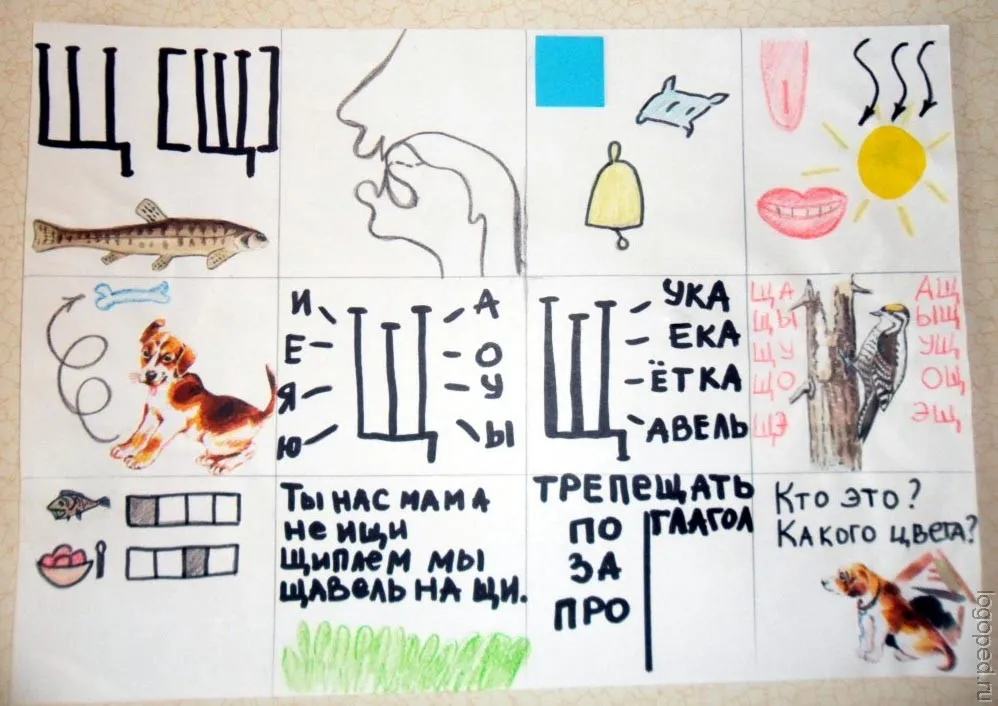 Щ [Щ]
И
Е
Я
Ю
Щ
А
О
У
Ы
Щ
УКА
ЕКА
ЁТКА
АВЕЛЬ
ЩА
ЩЫ
ЩУ
ЩО
ЩЭ
АЩ
ЫЩ
УЩ
ОЩ
ЭЩ
ТЫ НАС МАМА
НЕ ИЩИ
ЩИПАЕМ МЫ
ЩАВЕЛЬ НА ЩИ.
ТРЕПЕЩАТЬ
ПО
ЗА
ПРО
ГЛАГОЛ
КТО ЭТО?
КАКОГО ЦВЕТА?
logoped.ru